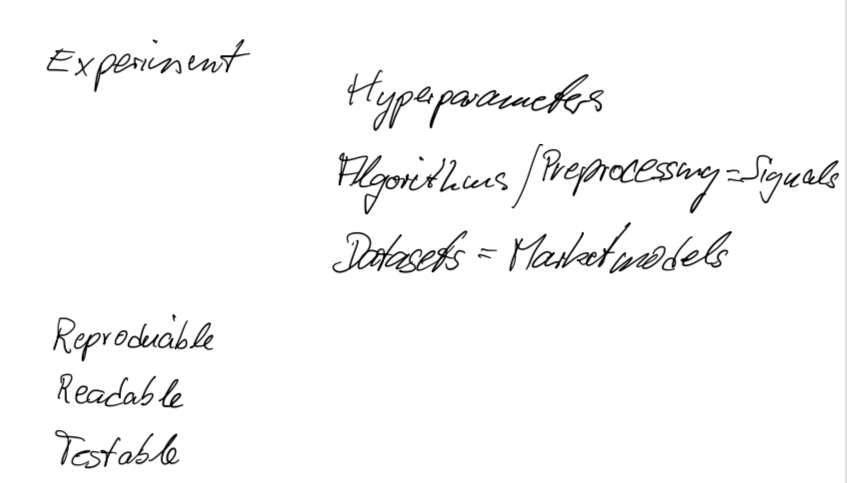 Experiment
Hyperparameters
Algorithms / Preprocessing = Signals
Datasets = Marketmodels
Reproducible
Readable
Testable